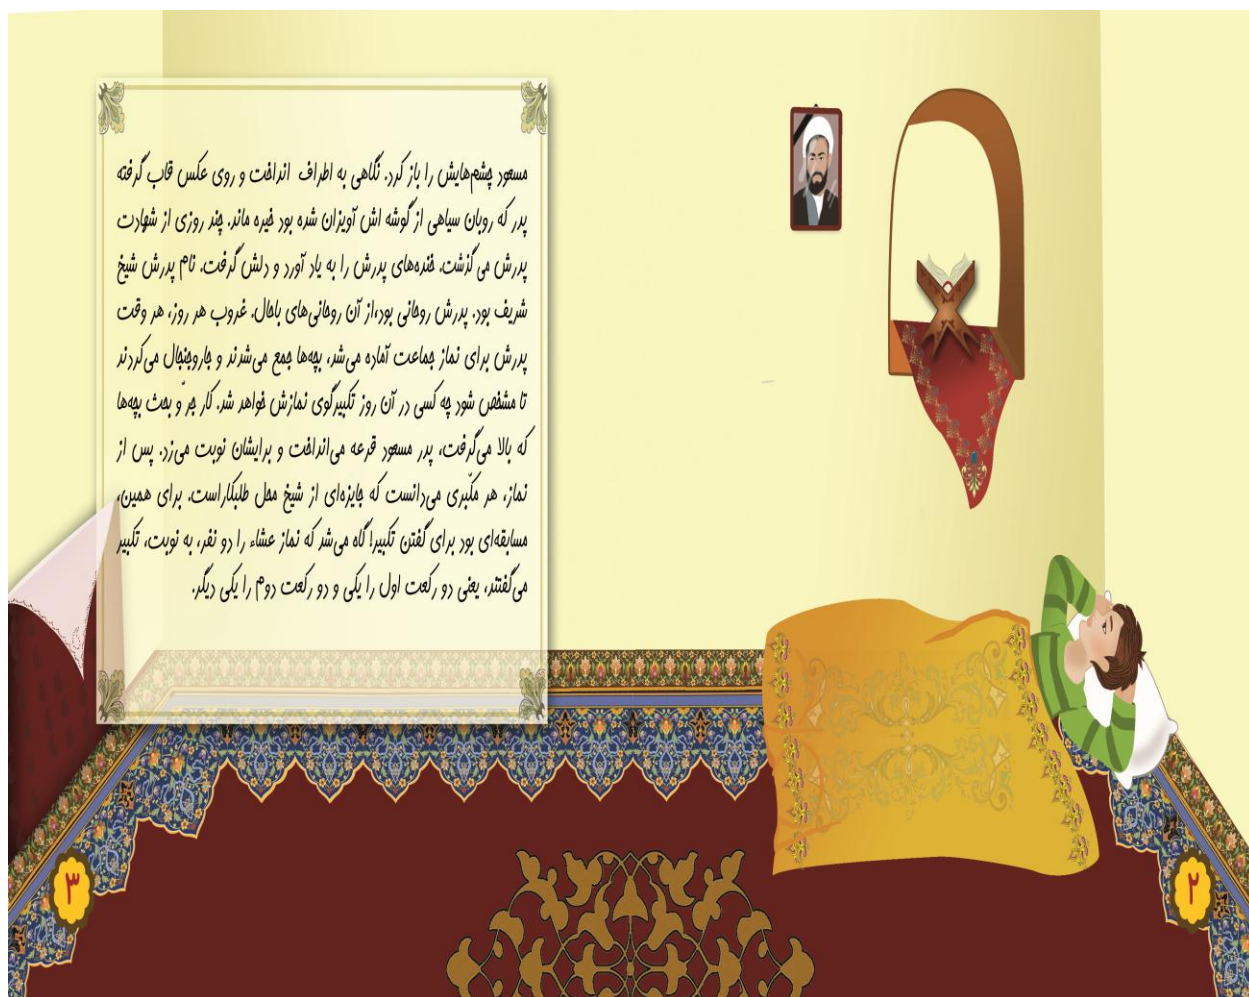 مسعود چشم‌هایش را باز کرد. نگاهی به اطراف انداخت و روی عکس قاب گرفته
پدر که روبان سیاهی از گوشه اش آویزان شده بود خیره ماند. چند روزی از شهادت
پدرش می گذشت. خنده‌های پدرش را به یاد آورد و دلش گرفت. نام پدرش شیخ
شریف بود. پدرش روحانی بود،از آن روحانی‌های باحال. غروب هر روز، هر وقت
پدرش برای نماز جماعت آماده می‌شد، بچه‌ها جمع می‌شدند و جاروجنجال می‌کردند
تا مشخص شود چه کسی در آن روز تکبیرگوی نمازش خواهد شد. کار جرّ و بحث بچه‌ها
که بالا می‌گرفت، پدر مسعود قرعه می‌انداخت و برایشان نوبت می‌زد. پس از
نماز، هر مکّبری می‌دانست که جایزه‌ای از شیخ محل طلبکاراست. برای همین،
مسابقه‌ای بود برای گفتن تکبیر! گاه می‌شد که نماز عشاء را دو نفر، به نوبت، تکبیر
می‌گفتند، یعنی دو رکعت اول را یکی و دو رکعت دوم را یکی دیگر.
۲
۳